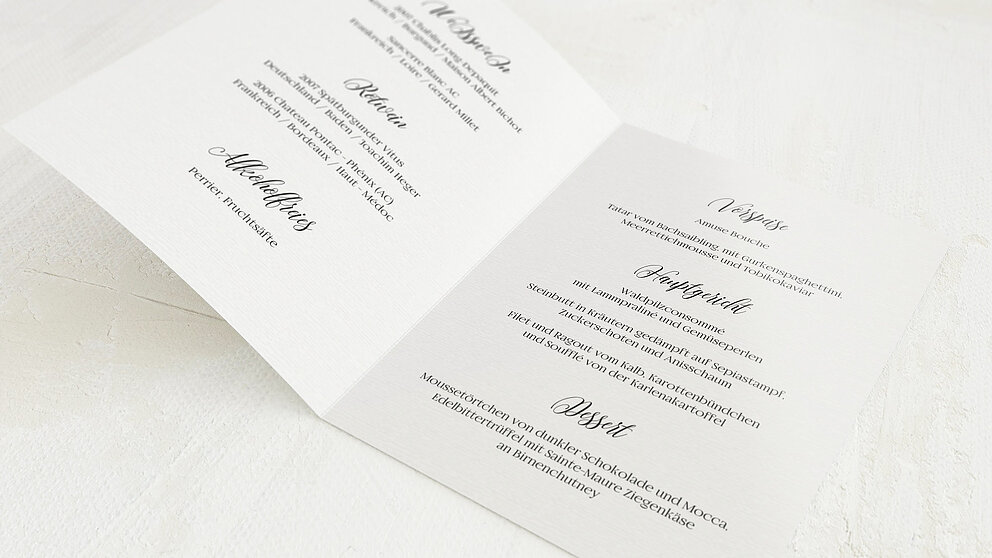 Weisswein
2001 Chablis Long-Depaquit
/ Burgund / Maison Albert Bichot
Sancerre Blanc AC
Frankreich / Loire / Gerard Millet
Rotwein
2007 Spätburgunder Vitus
Deutschland / Baden / Joachim Heger
2006 Chateau Pontac - Phénix (AC)
Frankreich / Bordeaux / Haut - Médoc
Alkoholfreies
Perrier, Fruchtsäfte
Vorspeise
Amuse Bouche
Tatar vom Bachsaibling, mit Gurkenspaghettini,
Meerrettichmousse und Tobikokaviar
Hauptgericht
Waldpilzconsommé
mit Lammpraliné und Gemüseperlen
Steinbutt in Kräutern gedämpft auf Sepiastampf,
Zuckerschoten und Anisschaum
Filet und Ragout vom Kalb, Karottenbündchen
und Soufflé von der Karlenakartoffel
Dessert
Moussetörtchen von dunkler Schokolade und Mocca,
Edelbittertrüffel mit Sainte-Maure Ziegenkäse
an Birnenchutney